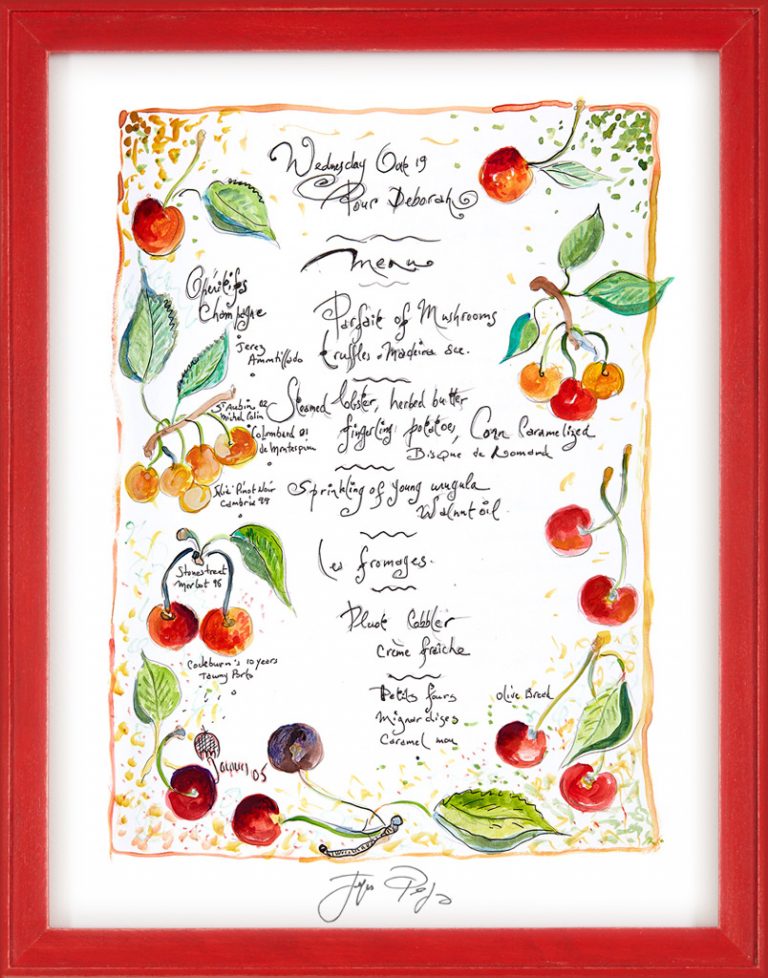 Wednesday Oct 19
Pour Deborah
Menu
Apéritifs
Champagne
Jerez
Ammontillado
Parfait of Mushrooms
truffles. Madeira sce.
St Aubin 02
Michel Colin
Colombard 01
de Montespin
Steamed lobster, herbed butter
fingerling potatoes, Corn Caramelized
Bisque de Romand
Pinot Noir
Cambria 99
Sprinkling of young arugula
Walnut oil.
Les fromages.
Stonestreet
Merlot 96
Pluot Cobbler
Crème fraîche
Cockburn's 10 years
Tawny Porto
Petits fours
Mignardises
Caramel mou
Olive Bread
Jacques 05